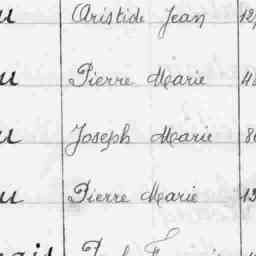 u Aristide Jean 12
u Pierre Marie
u Joseph Marie 8
u Pierre Marie 13